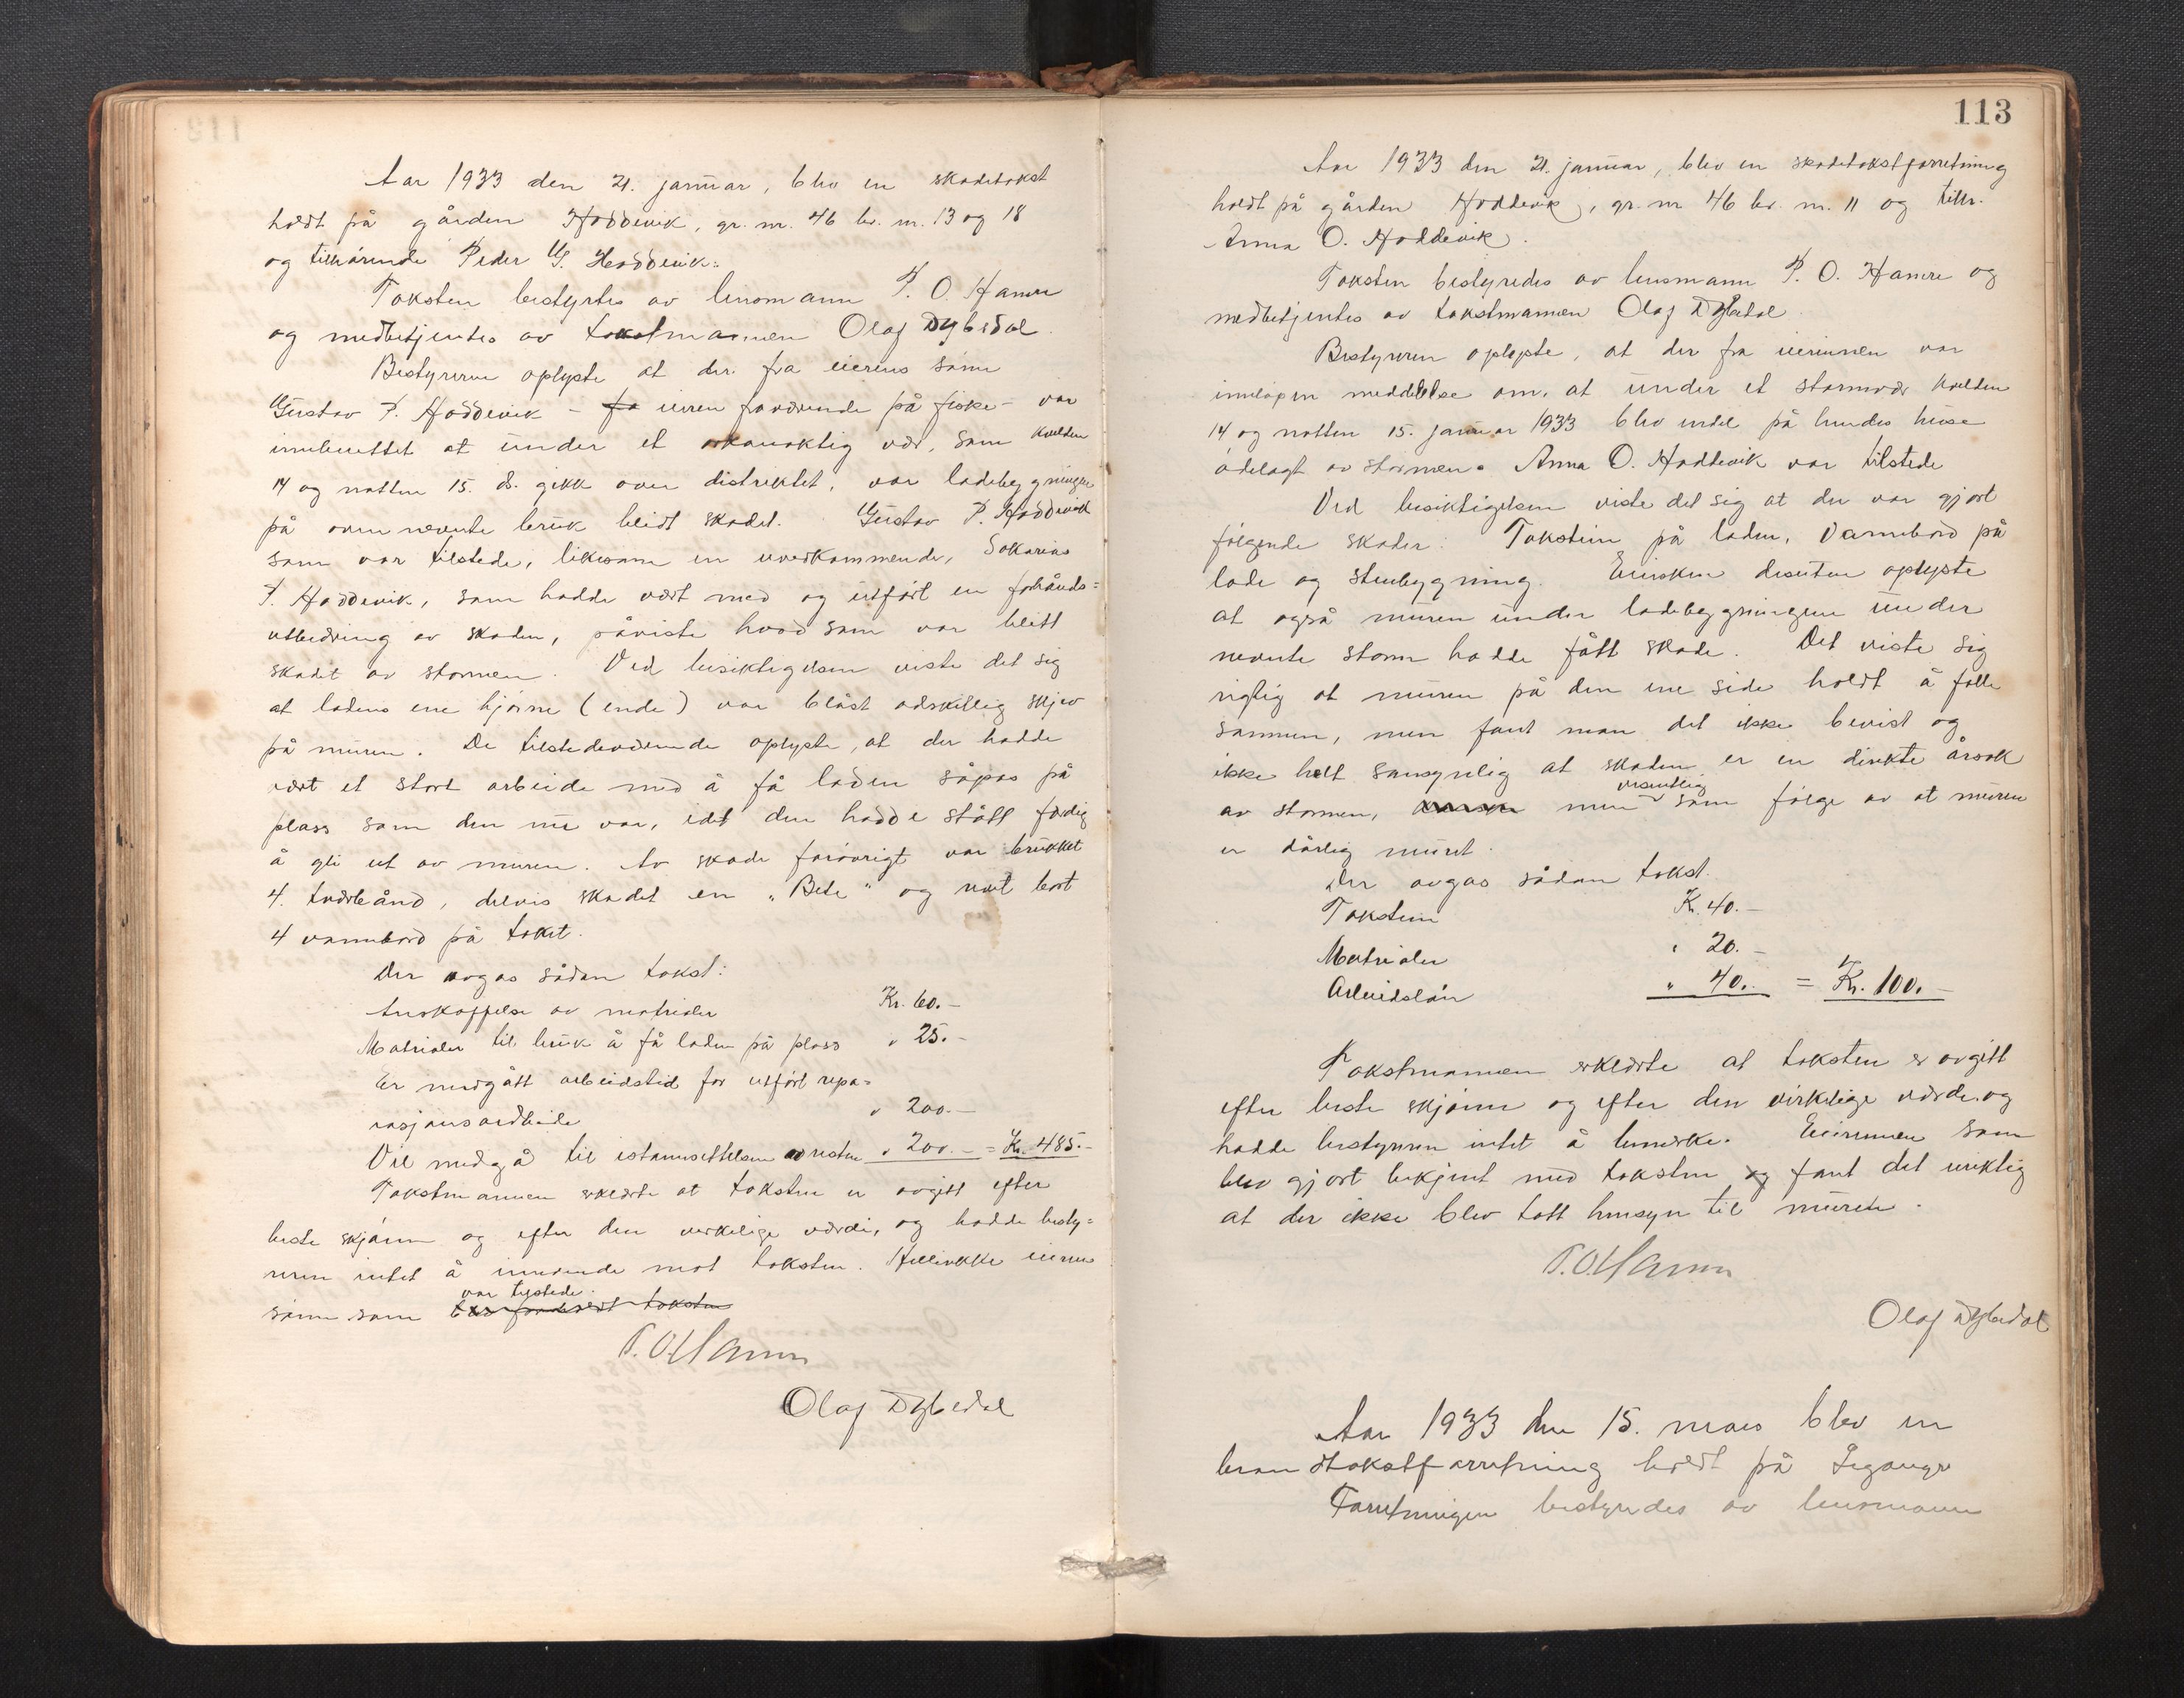 Aar 1933 den 21. januar, blev en skadetakst
holdt på gården Hoddevik, gr. nr. 46 br. nr. 13 og 18
og tilhørende Peder G. Hoddevik.
Taksten bestyrtes av lensmann P. O. Hamre
og medbetjentes av takstmannen Olaf Dybedal
Bestyreren oplyste at der fra eierens sønn
Gustav P. Hoddevik - fo eieren fraværende på fiske - var
innberettet at under et orkanaktig vær, som kvelden
14 og natten 15. ds. gikk over distriktet, var ladebygningen
på ovennevnte bruk blidt skadet. Gustav P. Hoddevik
som var tilstede, likesom en uvedkommende, Sakarias
P. Hoddevik, som hadde vært med og utført en forhånds=
utbedring av skaden, påviste hvad som var blitt
skadet av stormen. Ved besiktigelsen viste det sig
at ladens ene hjørne (ende) var blåst adskillig skjev
på muren. De tilstedeværende oplyste, at der hadde
vært et stort arbeide med å få laden såpas på
plass som den nu var, idet den hadde stått ferdig
å gli ut av muren. Av skade forøvrigt var brukket
4. tverrbånd, delvis skadet en „Bete“ og revet bort
4 vannbord på taket.
Der avgas sådan takst:
Anskaffelse av matrialer Kr. 60.-
Matrialer til bruk å få laden på plass " 25.-
Er medgått arbeidstid for utført repa=
rasjonsarbeide " 200.-
Vil medgå til istannsettelsen av resten " 200.- = Kr. 485.-
Takstmannen erklærte at taksten er avgitt efter
beste skjønn og efter den verkelige værdi, og hadde besty=
reren intet å innvende mot taksten. Hellerikke eierens
var tilstede.
sønn som blev forelest taksten
P. O. Hamre
Olaf Dybedal
113
Aar 1933 den 21. januar, blev en skadetakstforretning
holdt på gården Hoddevik, gr. nr 46 br. nr. 11 og tilh.
Anna O. Hoddevik.
Taksten bestyredes av lensmann P. O. Hamre og
medbetjentes av takstmannen Olaf Dybedal
Bestyreren oplyste, at der fra eierinnen var
innløpen meddelelse om, at under et stormvær kvelden
14 og natten 15. januar 1933 blev endel på hendes huse
ødelagt av stormen. Anna O. Hoddevik var tilstede
Ved besiktigelsen viste det sig at der var gjort
følgende skader: Takstein på laden, Vannbord på
lade og stenbygning. Eiersken desuten oplyste
at også muren under ladebygningen under
nevnte storm hadde fått skade. Det viste sig
riktig at muren på den ene side holdt å falle
sammen, men fant man det ikke bevist og
ikke helt sansynlig at skaden er en direkte årsak
vesentlig
av stormen, men som følge av at muren
er dårlig muret.
Der avgas sådan takst.
Takstein Kr. 40.-
Matrialer " 20.-
Arbeidsløn " 40.- = Kr. 100.-
Takstmannen erklærte at taksten er avgitt
efter beste skjønn og efter den virkelige værde og
hadde bestyreren intet å bemerke. Eierinnen som
blev gjort bekjent med taksten og fant det uriktig
at der ikke blev tatt hensyn til muren.
P. O. Hamre
Olaf Dybedal
Aar 1933 den 15. mars blev en
brandtakstforretning holdt på
Forretningen bestyredes av lensmann